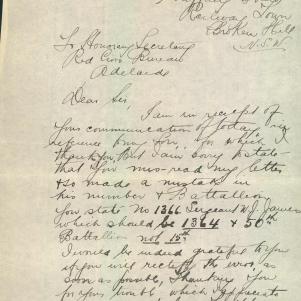 Railway Town
Broken Hill
N.S.W.
To Honorary Secretary
Red Cross Bureau
Adelaide
Dear Sir,
I am in receipt of
your communication of today,
reference my for which I
thank you, But I am sorry to state
that you mis-read my letter
& so made a mistake in
his number & Battalion
You state No 1366 Sergeant W. J. James
which should be 1364 & 50th
Battalion not 15th
I would be indeed grateful to you
if you will rectify the error as
soon as possible, thanking you
for your trouble, which I appreciate